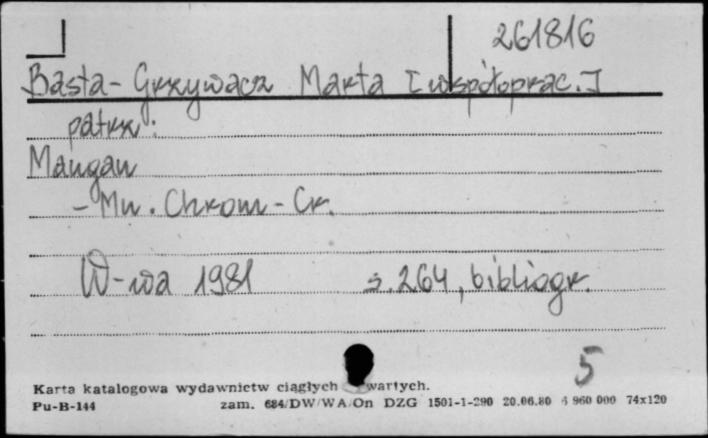 261816
Basta-Grzywacz Marta [współoprac.]
patrz:
Mangan
- Mn. Chrom - Cr.
W-wa 1981 s. 264, bibliogr.
5
Karta katalogowa wydawnictw ciągłych wartych.
Pu-B-144 zam. 684/DW/WA/On DZG 1501-1-290 20.06.80 960 000 74x120